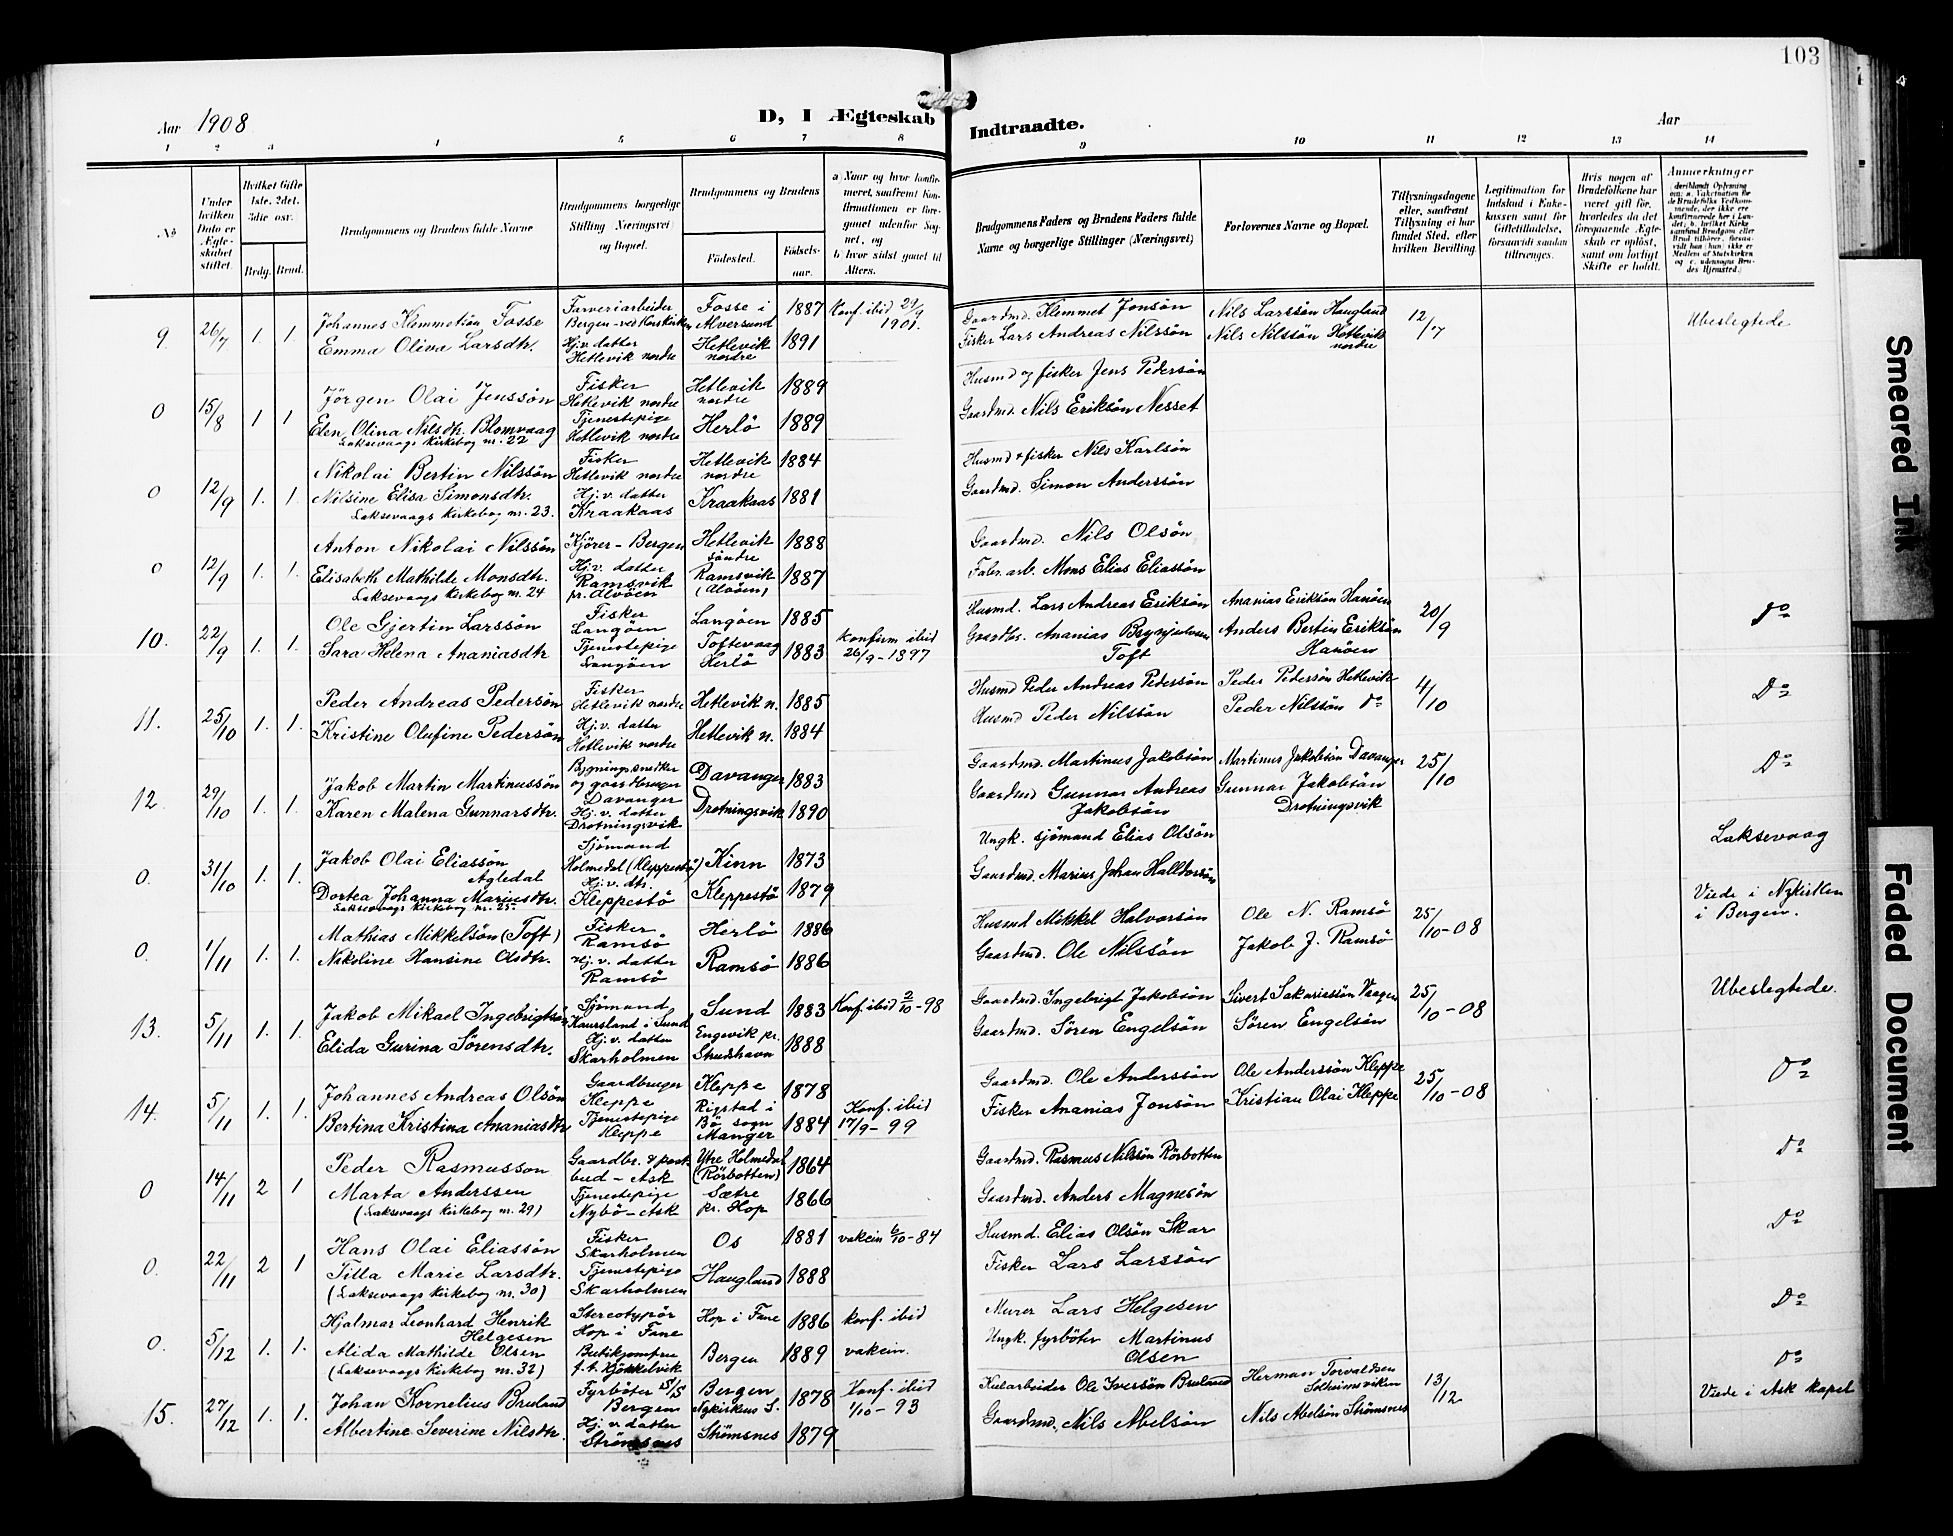 103
Aar 1908
D, I Ægteskab Indtraadte.
Aar
1 2 3 4 5 6 7 8 9 10 11 12 13 14
No
Under hvilken Dato er Ægteskabet stiftet.
Hvilket Gifte 1ste. 2det. 3die osv.
Brdg. Brud.
Brudgommens og Brudens fulde Navne
Brudgommens borgerlige Stilling (Næringsvei) og Bopæl.
Brudgommens og Brudens
Födested.
Födsels-aar.
a) Naar og hvor konfirmeret, saafremt Konfirmationen er foregaaet udenfor Sognet, og
b) hvor sidst gaaet til Alters.
Brudgommens Faders og Brudens Faders fulde Navne og borgerlige Stillinger (Næringsvei)
Forlovernes Navne og Bopæl.
Tillysningsdagene eller, saafremt Tillysning ei har fundet Sted, efter hvilken Bevilling.
Legitimation for Indskud i Enkekassen samt for Giftetilladelse, forsaavidt saadan tiltrænges.
Hvis nogen af Brudefolkene har været gift för, hvorledes da det foregaaende Ægteskab er oplöst, samt om lovligt Skifte er holdt.
Anmærkninger
9. 26/7 1. 1. Johannes Klemmetsön Fosse Farveriarbeider Bergen - ved Korskirken Fosse i Alversund 1887 Konf. ibid 29/9 1901. Gaardmd. Klemmet Jonsön Nils Larssön Haugland 12/7 Ubeslegtede
Emma Oliva Larsdtr. Hj. v. datter Hetlevik nordre Hetlevik nordre 1891 Fisker Lars Andreas Nilssön Nils Nilssön Hetlevik nordre
0 15/8 1 1 Jörgen Olai Jenssön Fisker Hetlevik nordre Hetlevik nordre 1889 Husmd og fisker Jens Pedersön
Elen Olina Nilsdtr. Blomvaag Tjenestepige Hetlevik nordre Herlö 1889 Gaardmd. Nils Eriksön Nesset
Laksevaags Kirkebog nr. 22
0 12/9 1. 1. Nikolai Bertin Nilssön Fisker Hetlevik nordre Hetlevik nordre 1884 Husmd & fisker Nils Karlsön
Nilsine Elisa Simonsdtr. Hj. v. datter Kraakaas Kraakaas 1881 Gaardmd. Simon Anderssön
Laksevaags Kirkebog nr. 23.
0 12/9 1. 1. Anton Nikolai Nilssön Kjörer - Bergen Hetlevik söndre 1888 Gaardmd. Nils Olsön
Elisabeth Mathilde Monsdtr. Hj. v. datter Ramsvik pr. Alvöen Ramsvik (Alvöen) 1887 Fabr. arb. Mons Elias Eliassön
Laksevaags Kirkebog nr. 24
10. 22/9 1. 1. Ole Gjertin Larssön Fisker Langöen Langöen 1885 Husmd. Lars Andreas Eriksön Ananias Eriksön Hanöen 20/9 Do
Sara Helena Ananiasdtr Tjenestepige Langöen Toftevaag Herlö 1883 Konfirm ibid 26/9 - 1897 Gaardbr. Ananias Brynjulvsen Toft Anders Bertin Eriksön Hanöen
11. 25/10 1. 1. Peder Andreas Pedersön Fisker Hetlevik nordre Hetlevik n. 1885 Husmd Peder Andreas Pedersön Peder Pedersön Hetlevik 4/10 Do
Kristine Olufine Pedersön Hj. v. datter Hetlevik nordre Hetlevik n. 1884 Husmd Peder Nilssön Peder Nilssön Do
12. 29/10 1. 1. Jakob Martin Martinussön Bygningssnedker og gaardbruger Davanger Davanger 1883 Gaardmd. Martinus Jakobsön Martinus Jakobsön Davanger 25/10 Do
Karen Malena Gunnarsdtr. Hj. v. datter Drotningsvik Drotningsvik 1890 Gaardmd Gunnar Andreas Jakobsön Gunnar Jakobsön Drotningsvik
0. 31/10 1. 1. Jakob Olai Eliassön Agledal Sjömand Holmedal (Kleppestö) Kinn 1873 Ungk. sjömand Elias Olsön Laksevaag
Dortea Johanna Mariusdtr. Hj. v. dtr. Kleppestö Kleppestö 1879 Gaardmd. Marius Johan Halldorsön
Laksevaags Kirkebog nr. 25
0. 1/11 1. 1. Mathias Mikkelsön (Toft) Fisker Ramsö Herlö 1886 Husmd Mikkel Halvorsön Ole N. Ramsö 25/10 - 08 Viede i Nykirken i Bergen.
Nikoline Hansine Olsdtr. Hj. v. datter Ramsö Ramsö 1886 Gaardmd. Ole Nilssön Jakob J. Ramsö
13. 5/11 1. 1. Jakob Mikael Ingebrigtsön Sjömand Kaursland i Sund Sund 1883 Konf. ibid 2/10 - 98 Gaardmd. Ingebrigt Jakobsön Sivert Sakariassön Vaagen 25/10 - 08 Ubeslegtede.
Elida Gurina Sörensdtr. Hj. v. datter Skarholmen Engevik pr. Strudshavn 1888 Gaardmd. Sören Engelsön Sören Engelsön
14. 5/11 1. 1. Johannes Andreas Olsön Gaardbruger Kleppe Kleppe 1878 Gaardmd. Ole Anderssön Ole Anderssön Kleppe 25/10 - 08 Do
Bertina Kristina Ananiasdtr Tjenestepige Kleppe Rigstad i Bö sogn Manger 1884 Konf. ibid 17/9 - 99 Fisker Ananias Jonsön Kristian Olai Kleppe
0 14/11 2 1 Peder Rasmusson Gaardbr. & postbud - Ask Ytre Holmedal (Rörbotten) 1864 Gaardmd. Rasmus Nilssön Rörbotten Do
Marta Anderssen Tjenestepige Nybö - Ask Sætre pr. Hop 1866 Gaardmd. Anders Magnesön
(Laksevaags Kirkebog nr. 29)
0. 22/11 2 1 Hans Olai Eliassön Fisker Skarholmen Os 1881 vakcin 6/10 - 84 Husmd. Elias Olsön Skar Do
Tilla Marie Larsdtr. Tjenestepige Skarholmen Haugland 1888 Fisker Lars Larssön
(Laksevaags Kirkebog nr. 30)
0. 5/12 1. 1. Hjalmar Leonhard Henrik Helgesen Stereotypör Hop i Fane Hop i Fane 1886 konf. ibid Murer Lars Helgesen Do
Alida Mathilde Olsen Butikjomfru f. t. Kjökkelvik Bergen 1889 vakcin. Ungk. fyrböter Martinus Olsen
(Laksevaags Kirkebog nr. 32)
15. 27/12 1. 1. Johan Kornelius Bruland Fyrböter Bergen Bergen Nykirkens S. 1878 Konf. ibid 1/10 - 93 Kularbeider Ole Iverssön Bruland Herman Torvaldsen Solheimsviken 13/12 Do
Albertine Severine Nilsdtr. Hj. v. datter Strömsnes Strömsnes 1879 Gaardmd. Nils Abelsön Nils Abelsön Strömsnes Viede i Ask kapel
Smeared Ink
Faded Document